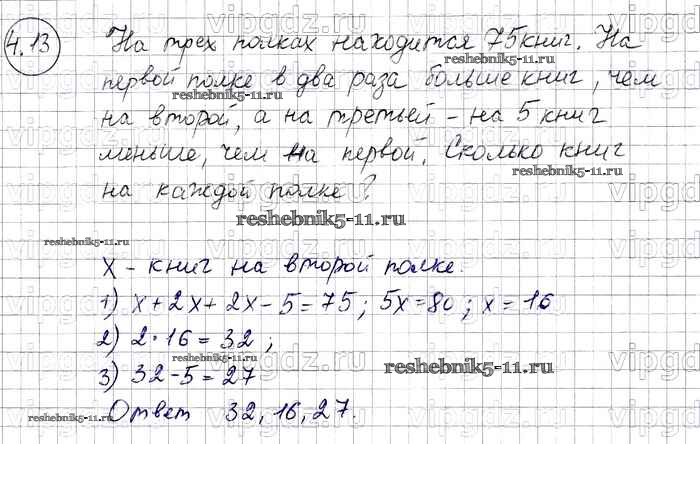 4.13
На трех полках находится 75 книг. На
первой полке в два раза больше книг, чем
на второй, а на третьей - на 5 книг
меньше, чем на первой. Сколько книг
на каждой полке?
x - книг на второй полке.
1) x + 2x + 2x - 5 = 75; 5x = 80; x = 16
2) 2 · 16 = 32;
3) 32 - 5 = 27
Ответ 32, 16, 27.
reshebnik5-11.ru
reshebnik5-11.ru
reshebnik5-11.ru
reshebnik5-11.ru
reshebnik5-11.ru
reshebnik5-11.ru
reshebnik5-11.ru
reshebnik5-11.ru
vipgdz.ru